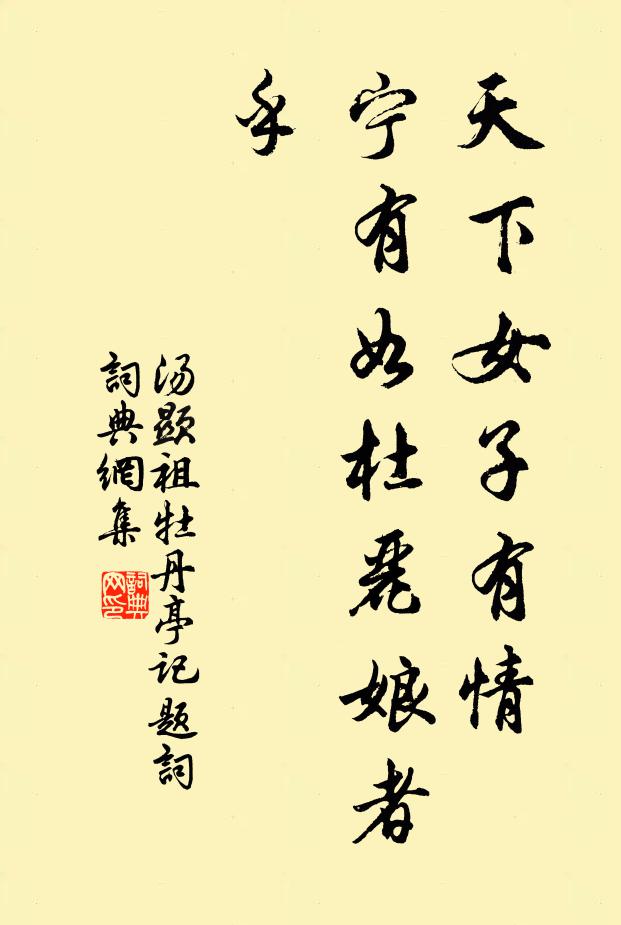 天下女子有情
宁有如杜麗娘者
乎
汤顯祖牡丹亭记题詞
詞典網集
詞典
网印